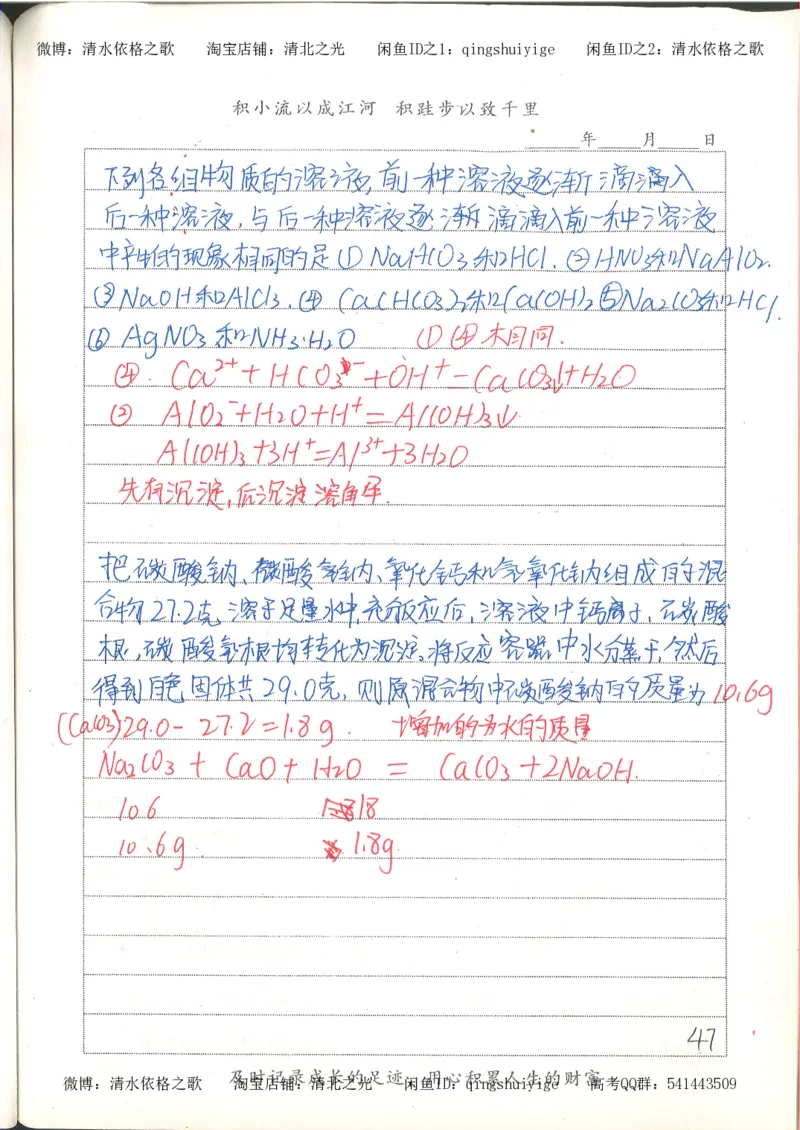 微博：清水依格之歌 淘宝店铺：清北之光 闲鱼ID之1：qingshuiyige 闲鱼ID之2：清水依格之歌
积小流以成江河 积跬步以致千里
年 月 日
下列各组物质的溶液,前一种溶液逐渐滴滴入
后一种溶液,与后一种溶液逐渐滴滴入前一种溶液
中产生的现象相同的是①NaHCO3和HCl.②HNO3和NaAlO2.
③NaOH和AlCl3.④Ca(HCO3)2和Ca(OH)2⑤Na2CO3和HCl.
⑥AgNO3和NH3·H2O ①④相同.
④. Ca²⁺+HCO3⁻+OH⁺=CaCO3↓+H2O
② AlO2⁻+H2O+H⁺=Al(OH)3↓
Al(OH)3+3H⁺=Al³⁺+3H2O
先有沉淀,后沉淀溶解.
把碳酸钠、碳酸氢钠、氧化钙和氢氧化钠组成的混
合物27.2克溶于足量水中,充分反应后,溶液中钙离子,碳酸
根,碳酸氢根均转化为沉淀,将反应容器中水分蒸干,然后
得到白色固体共29.0克,则原混合物中碳酸钠的质量为10.6g
(CaCO3)29.0-27.2=1.8g. 增加的为水的质量
Na2CO3+CaO+H2O=CaCO3+2NaOH.
106 18
10.6g. 1.8g
47
及时记录成长的足迹 用心积累人生的财富
微博：清水依格之歌 淘宝店铺：清北之光 闲鱼ID：qingshuiyige 高考QQ群：541443509